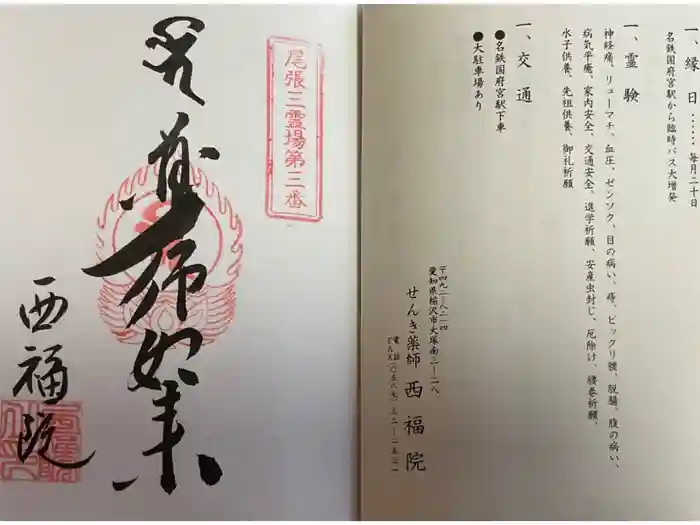 尾張三霊場第三番
薬師如来
西福院
一、縁日……毎月二十日
名鉄国府宮駅から臨時バス大増発
一、霊験
神経痛、リューマチ、血圧、ゼンソク、目の病い、痔、ビックリ腰、脱腸、腹の病い、
病気平癒、家内安全、交通安全、進学祈願、安産虫封じ、厄除け、腰巻祈願、
水子供養、先祖供養、御礼祈願
一、交通
●名鉄国府宮駅下車
●大駐車場あり
〒四九二―八二一四
愛知県稲沢市大塚南三―二八
せんき薬師 西福院
電話
FAX(〇五八七)三二―一五三一